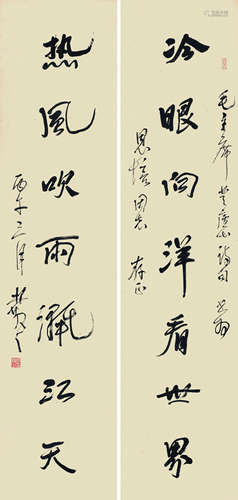 毛主席登庐山诗句 书为
冷眼向洋看世界
思慈同志 存正
热风吹雨洒江天
丙午三月 林散之